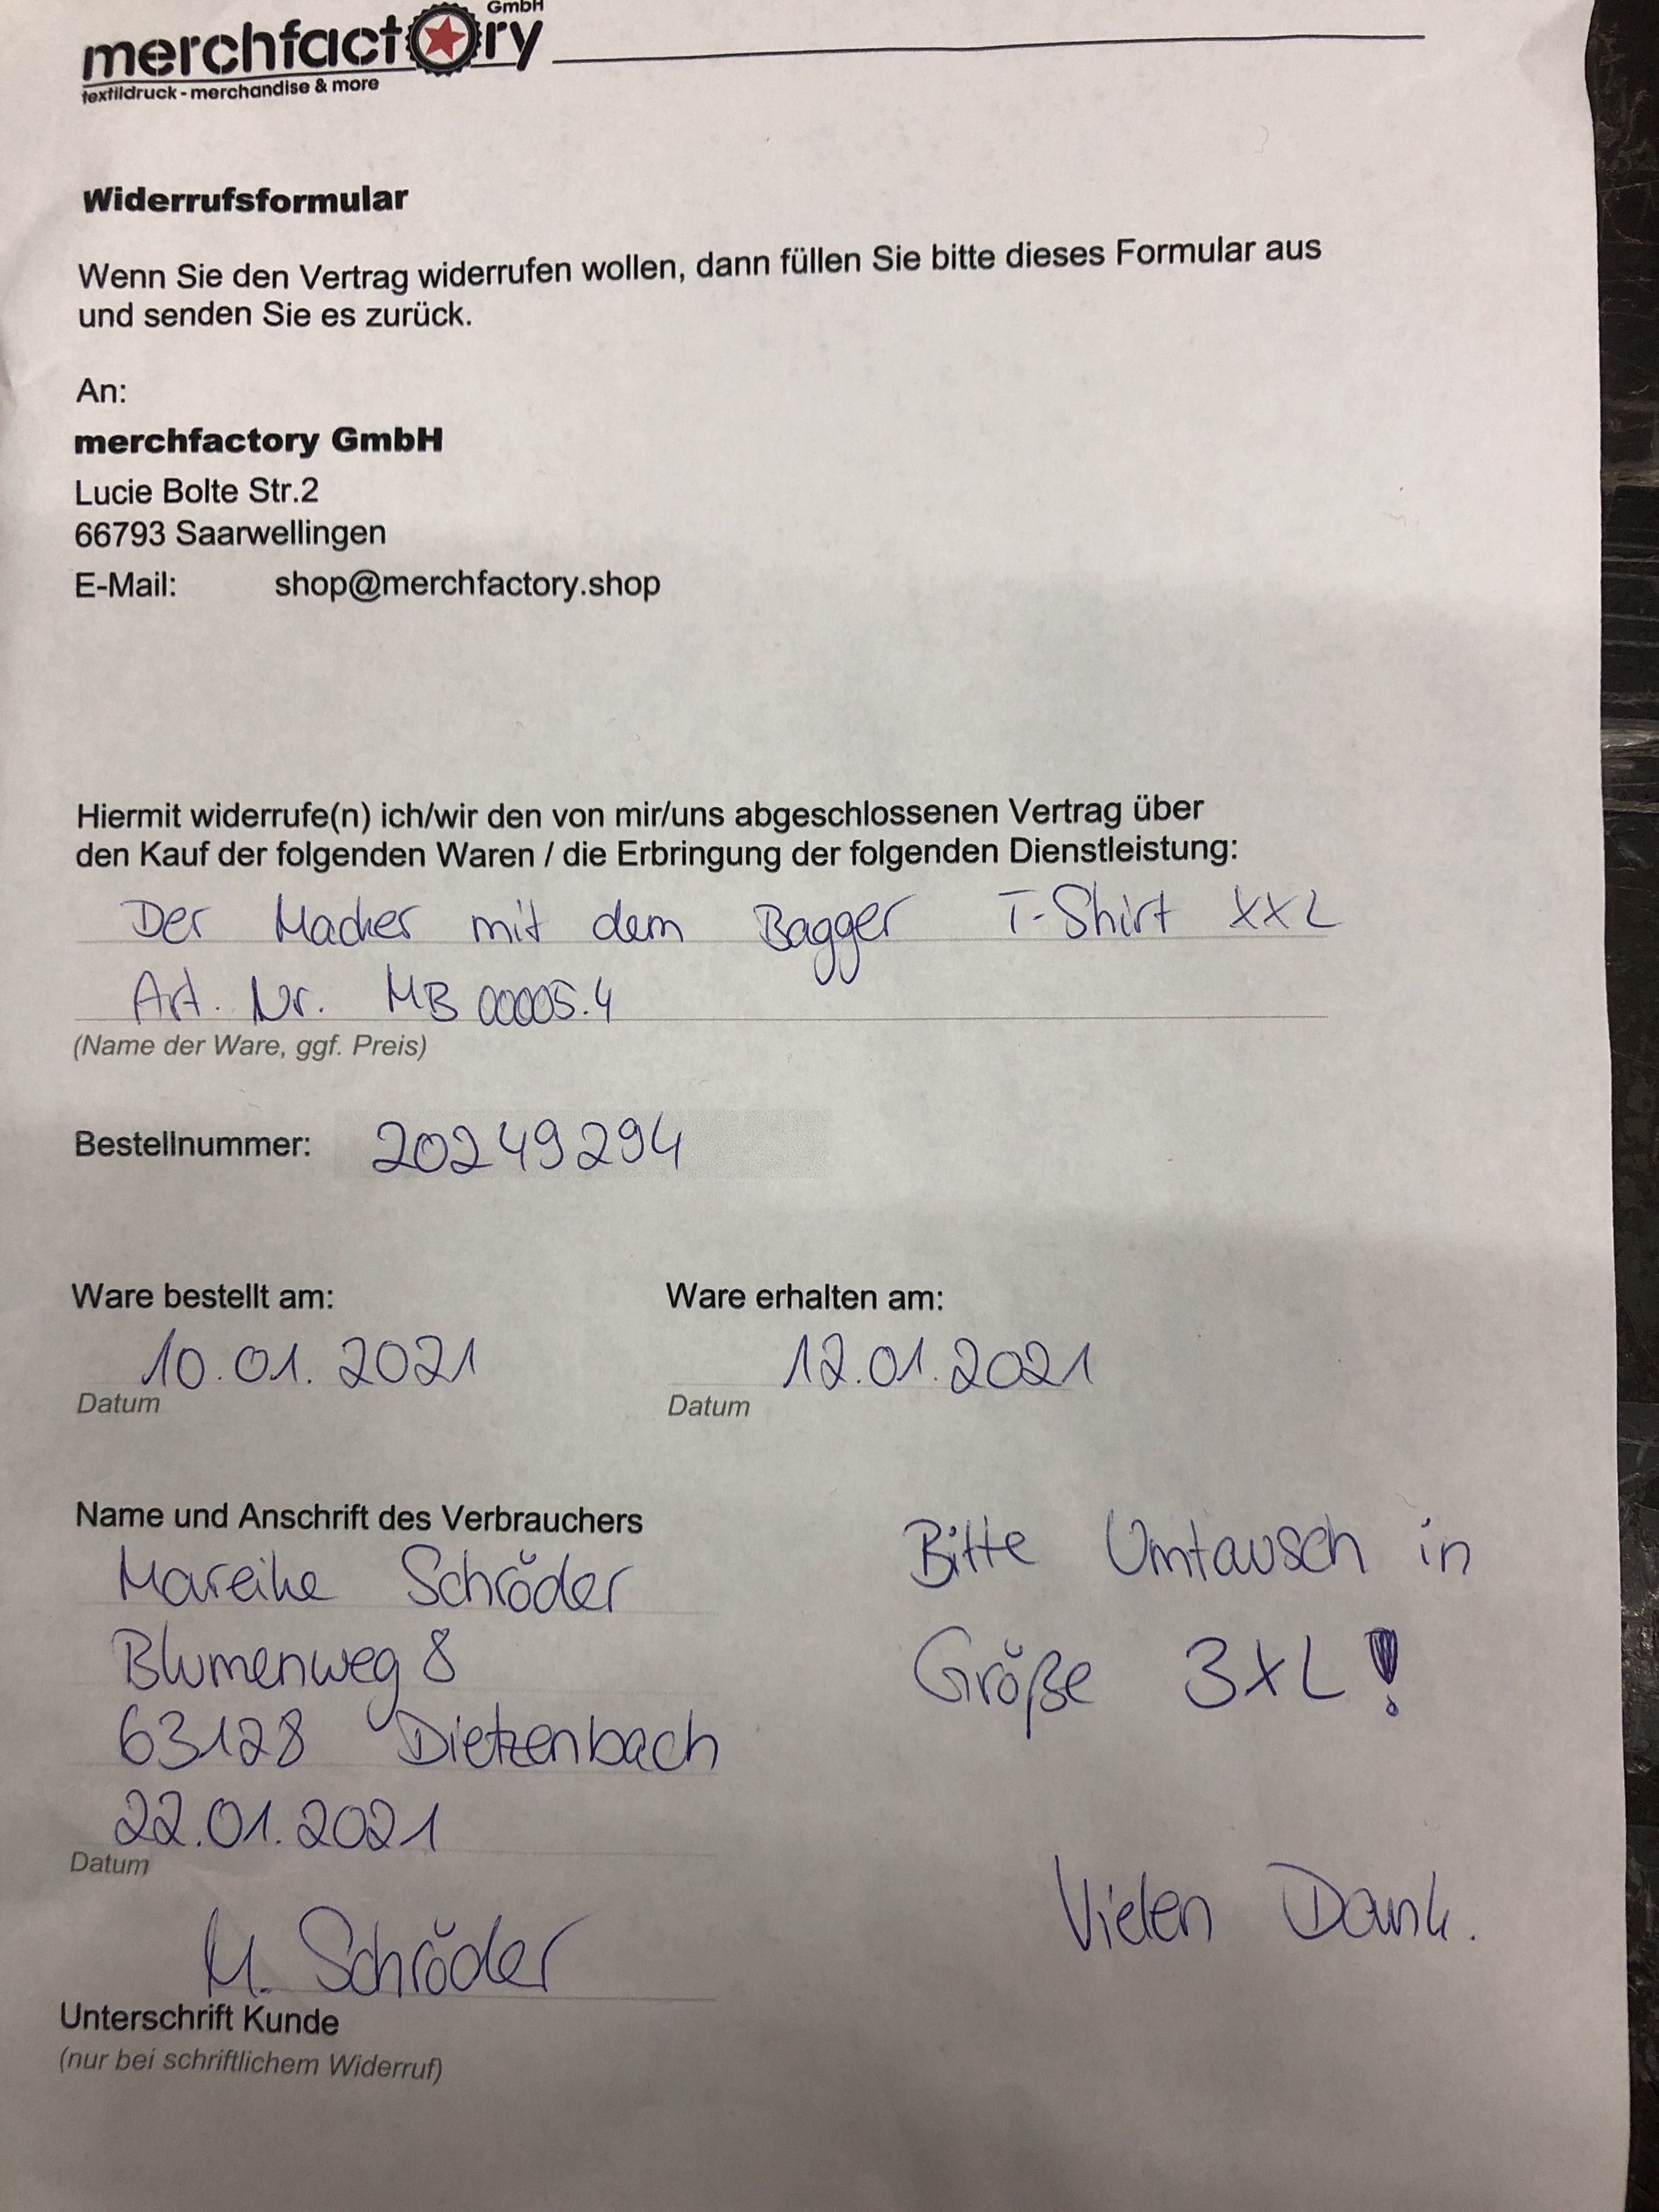 GmbH
merchfactory
textildruck - merchandise & more
Widerrufsformular
Wenn Sie den Vertrag widerrufen wollen, dann füllen Sie bitte dieses Formular aus
und senden Sie es zurück.
An:
merchfactory GmbH
Lucie Bolte Str.2
66793 Saarwellingen
E-Mail: shop@merchfactory.shop
Hiermit widerrufe(n) ich/wir den von mir/uns abgeschlossenen Vertrag über
den Kauf der folgenden Waren / die Erbringung der folgenden Dienstleistung:
Der Macker mit dem Bagger T-Shirt XXL
Art. Nr. MB 00005.4
(Name der Ware, ggf. Preis)
Bestellnummer: 20249294
Ware bestellt am: Ware erhalten am:
10.01.2021 12.01.2021
Datum Datum
Name und Anschrift des Verbrauchers
Bitte Umtausch in
Mareike Schröder
Blumenweg 8
Größe 3XL!
63128 Dietzenbach
22.01.2021
Datum
Vielen Dank.
M. Schröder
Unterschrift Kunde
(nur bei schriftlichem Widerruf)